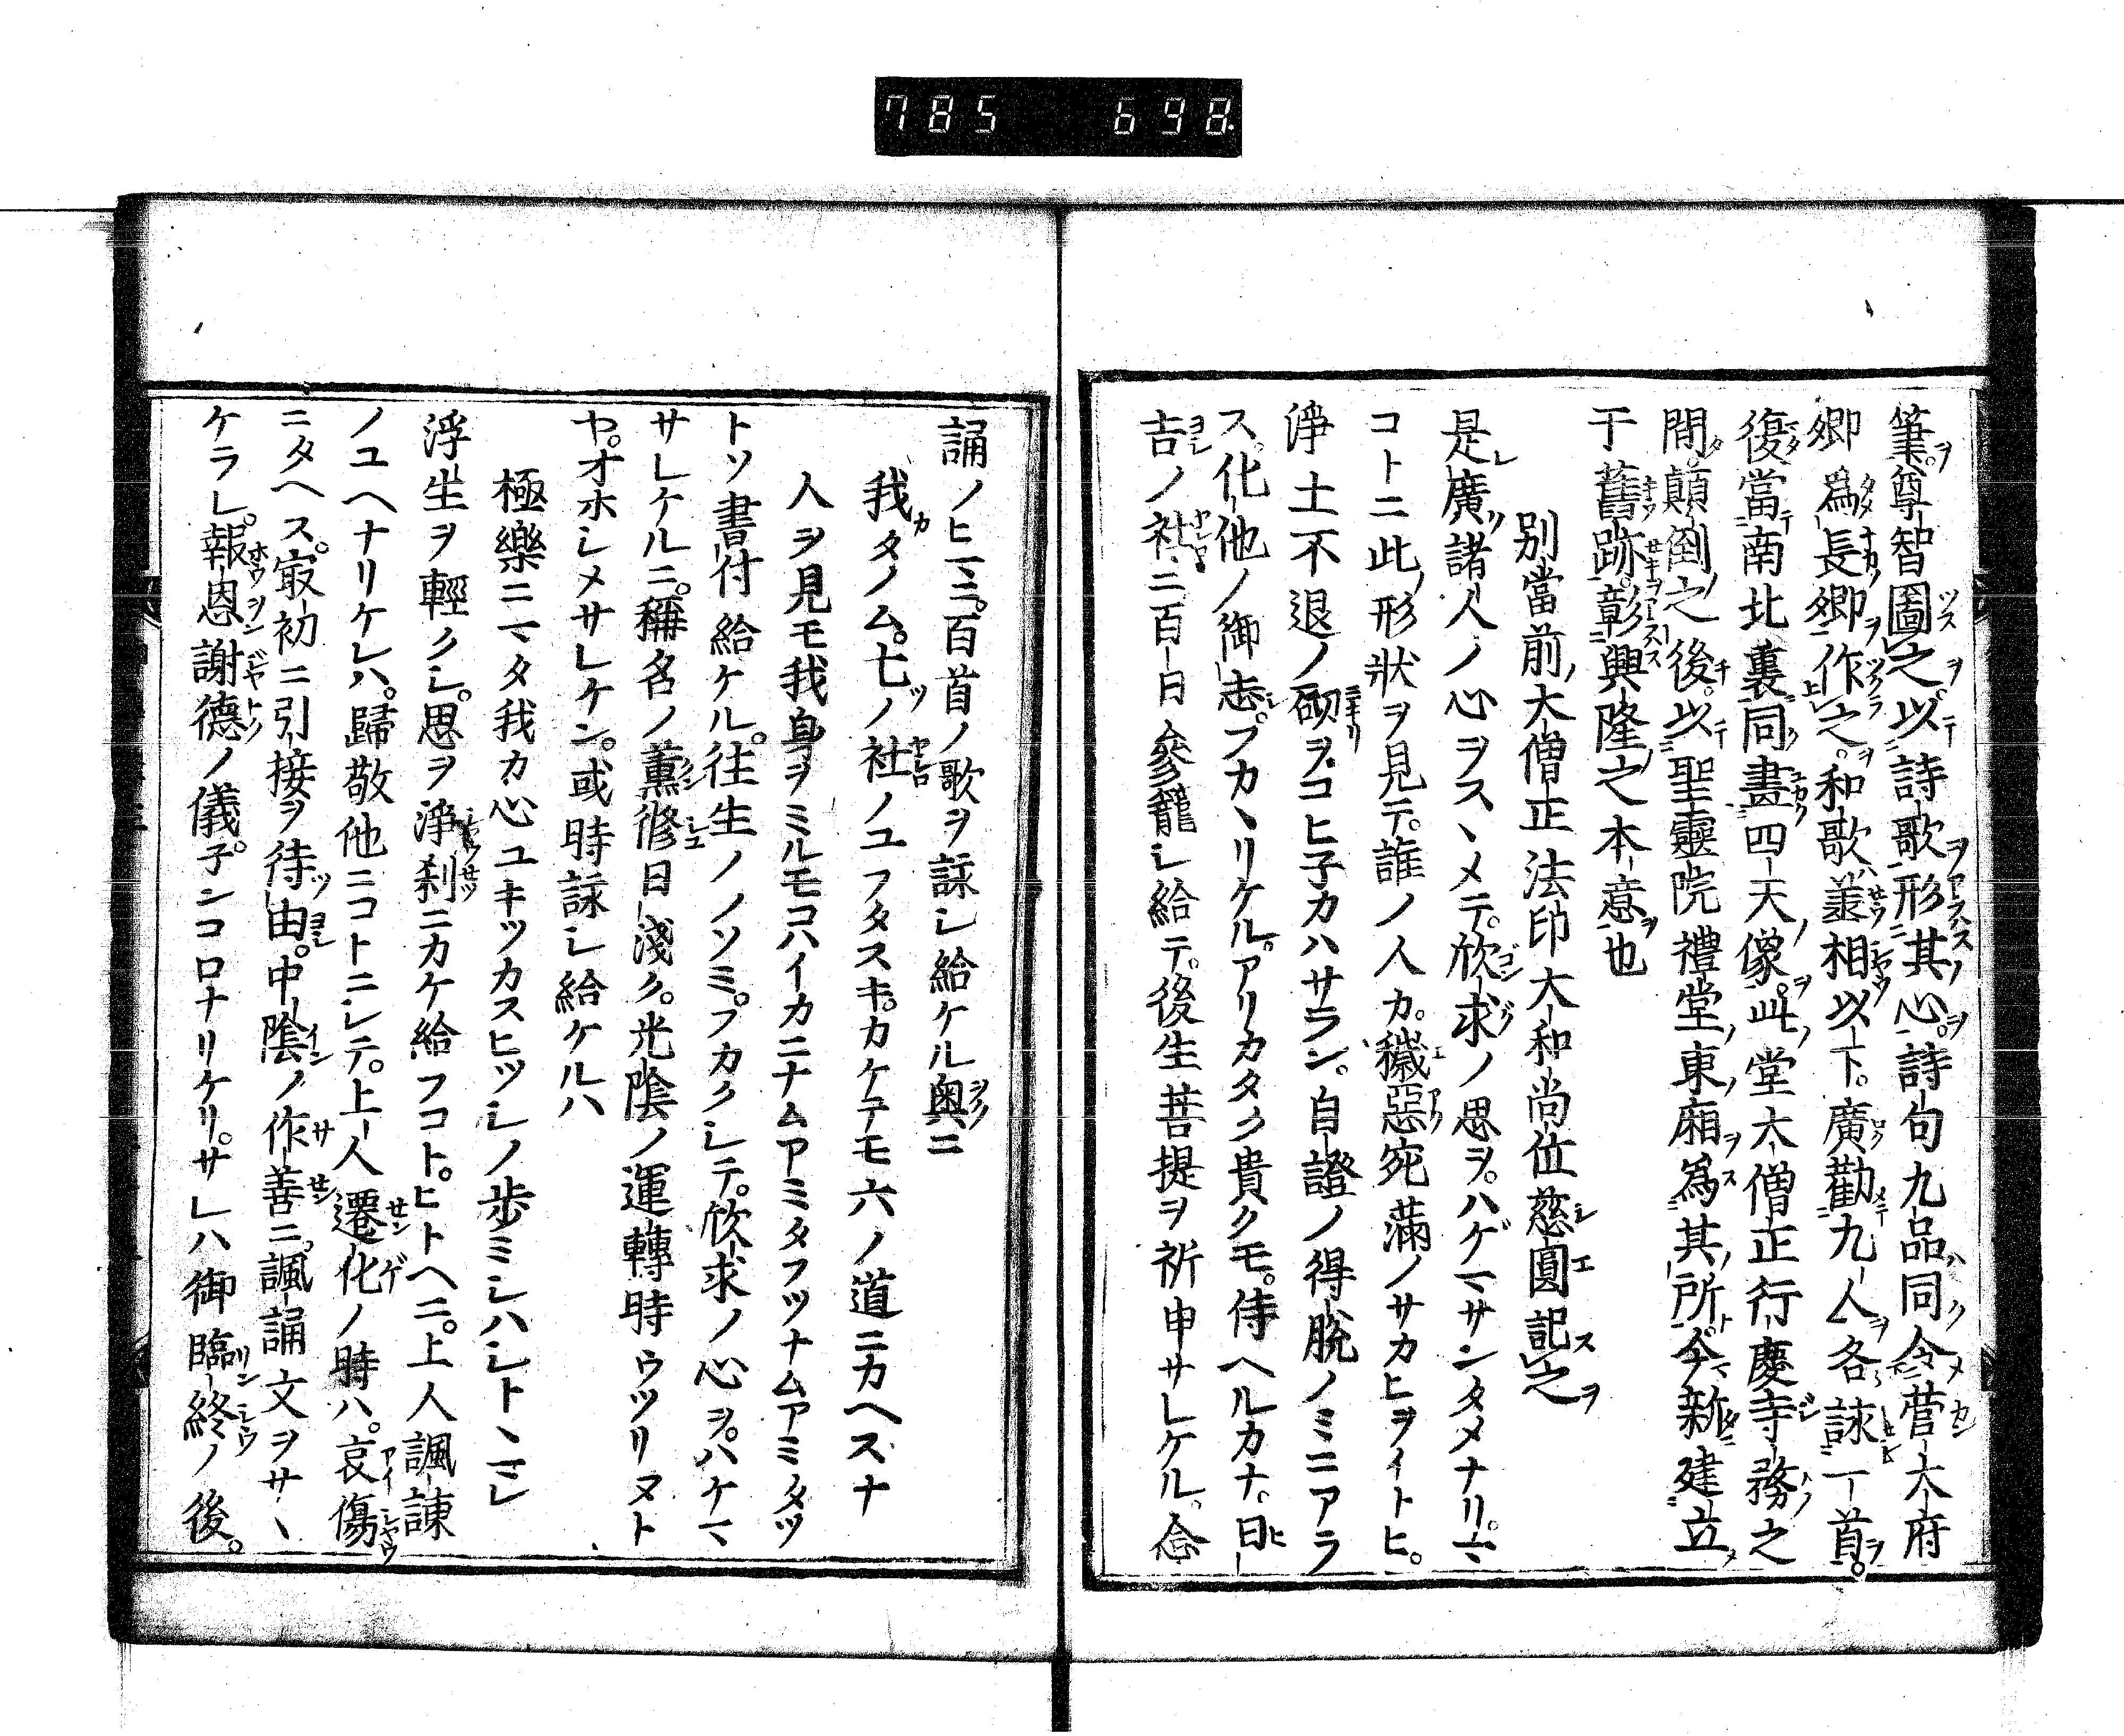 785 698
筆尊智圖之以詩歌形其心詩句九品同令菅大府
卿爲長卿作之和歌叢相以下廣勸九人各詠一首
復當南北裏同畫四天像此堂大僧正行慶寺務之
間顛倒之後以聖靈院禮堂東廂爲其所今新建立
于舊跡彰興隆之本意也
別當前大僧正法印大和尚位慈圓記之
是廣諸人ノ心ヲスヽメテ。欣求ノ思ヲ。ハゲマサンタメナリ。マヽ
コトニ此形狀ヲ見テ。誰ノ人カ。穢惡宛滿ノサカヒヲイトヒ。
淨土不退ノ砌ヲ。コヒ子カハサラン。自證ノ得脫ノミニアラ
ス。化他ノ御志。フカヽリケル。アリカタク貴クモ。侍ヘルカナ。日
吉ノ社ニ百日參籠シ給テ。後生菩提ヲ祈申サレケル。念
誦ノヒマニ。百首ノ歌ヲ詠シ給ケル奧ニ
我タノム。七ノ社ノユフタスキ。カケテモ六ノ道ニカヘスナ
人ヲ見モ我身ヲミルモコハイカニナムアミタフツナムアミタフツ
トソ書付給ケル。往生ノノソミ。フカクシテ。欣求ノ心ヲ。ハケマ
サレケルニ。稱名ノ薰修日淺ク。光陰ノ運轉時ウツリヌト
ヤ。オホシメサレケン。或時詠シ給ケルハ
極樂ニマタ我カ心ユキツカスヒツシノ歩ミシハシトヽマレ
浮生ヲ輕クシ。思ヲ淨刹ニカケ給フコト。ヒトヘニ。上人諷諫
ノユヘナリケレハ。歸敬他ニコトニシテ。上人遷化ノ時ハ。哀傷
ニタヘス。最初ニ引接ヲ待由。中陰ノ作善ニ。諷誦文ヲサヽ
ケラレ。報恩謝德ノ儀。子ンコロナリケリ。サレハ御臨終ノ後。